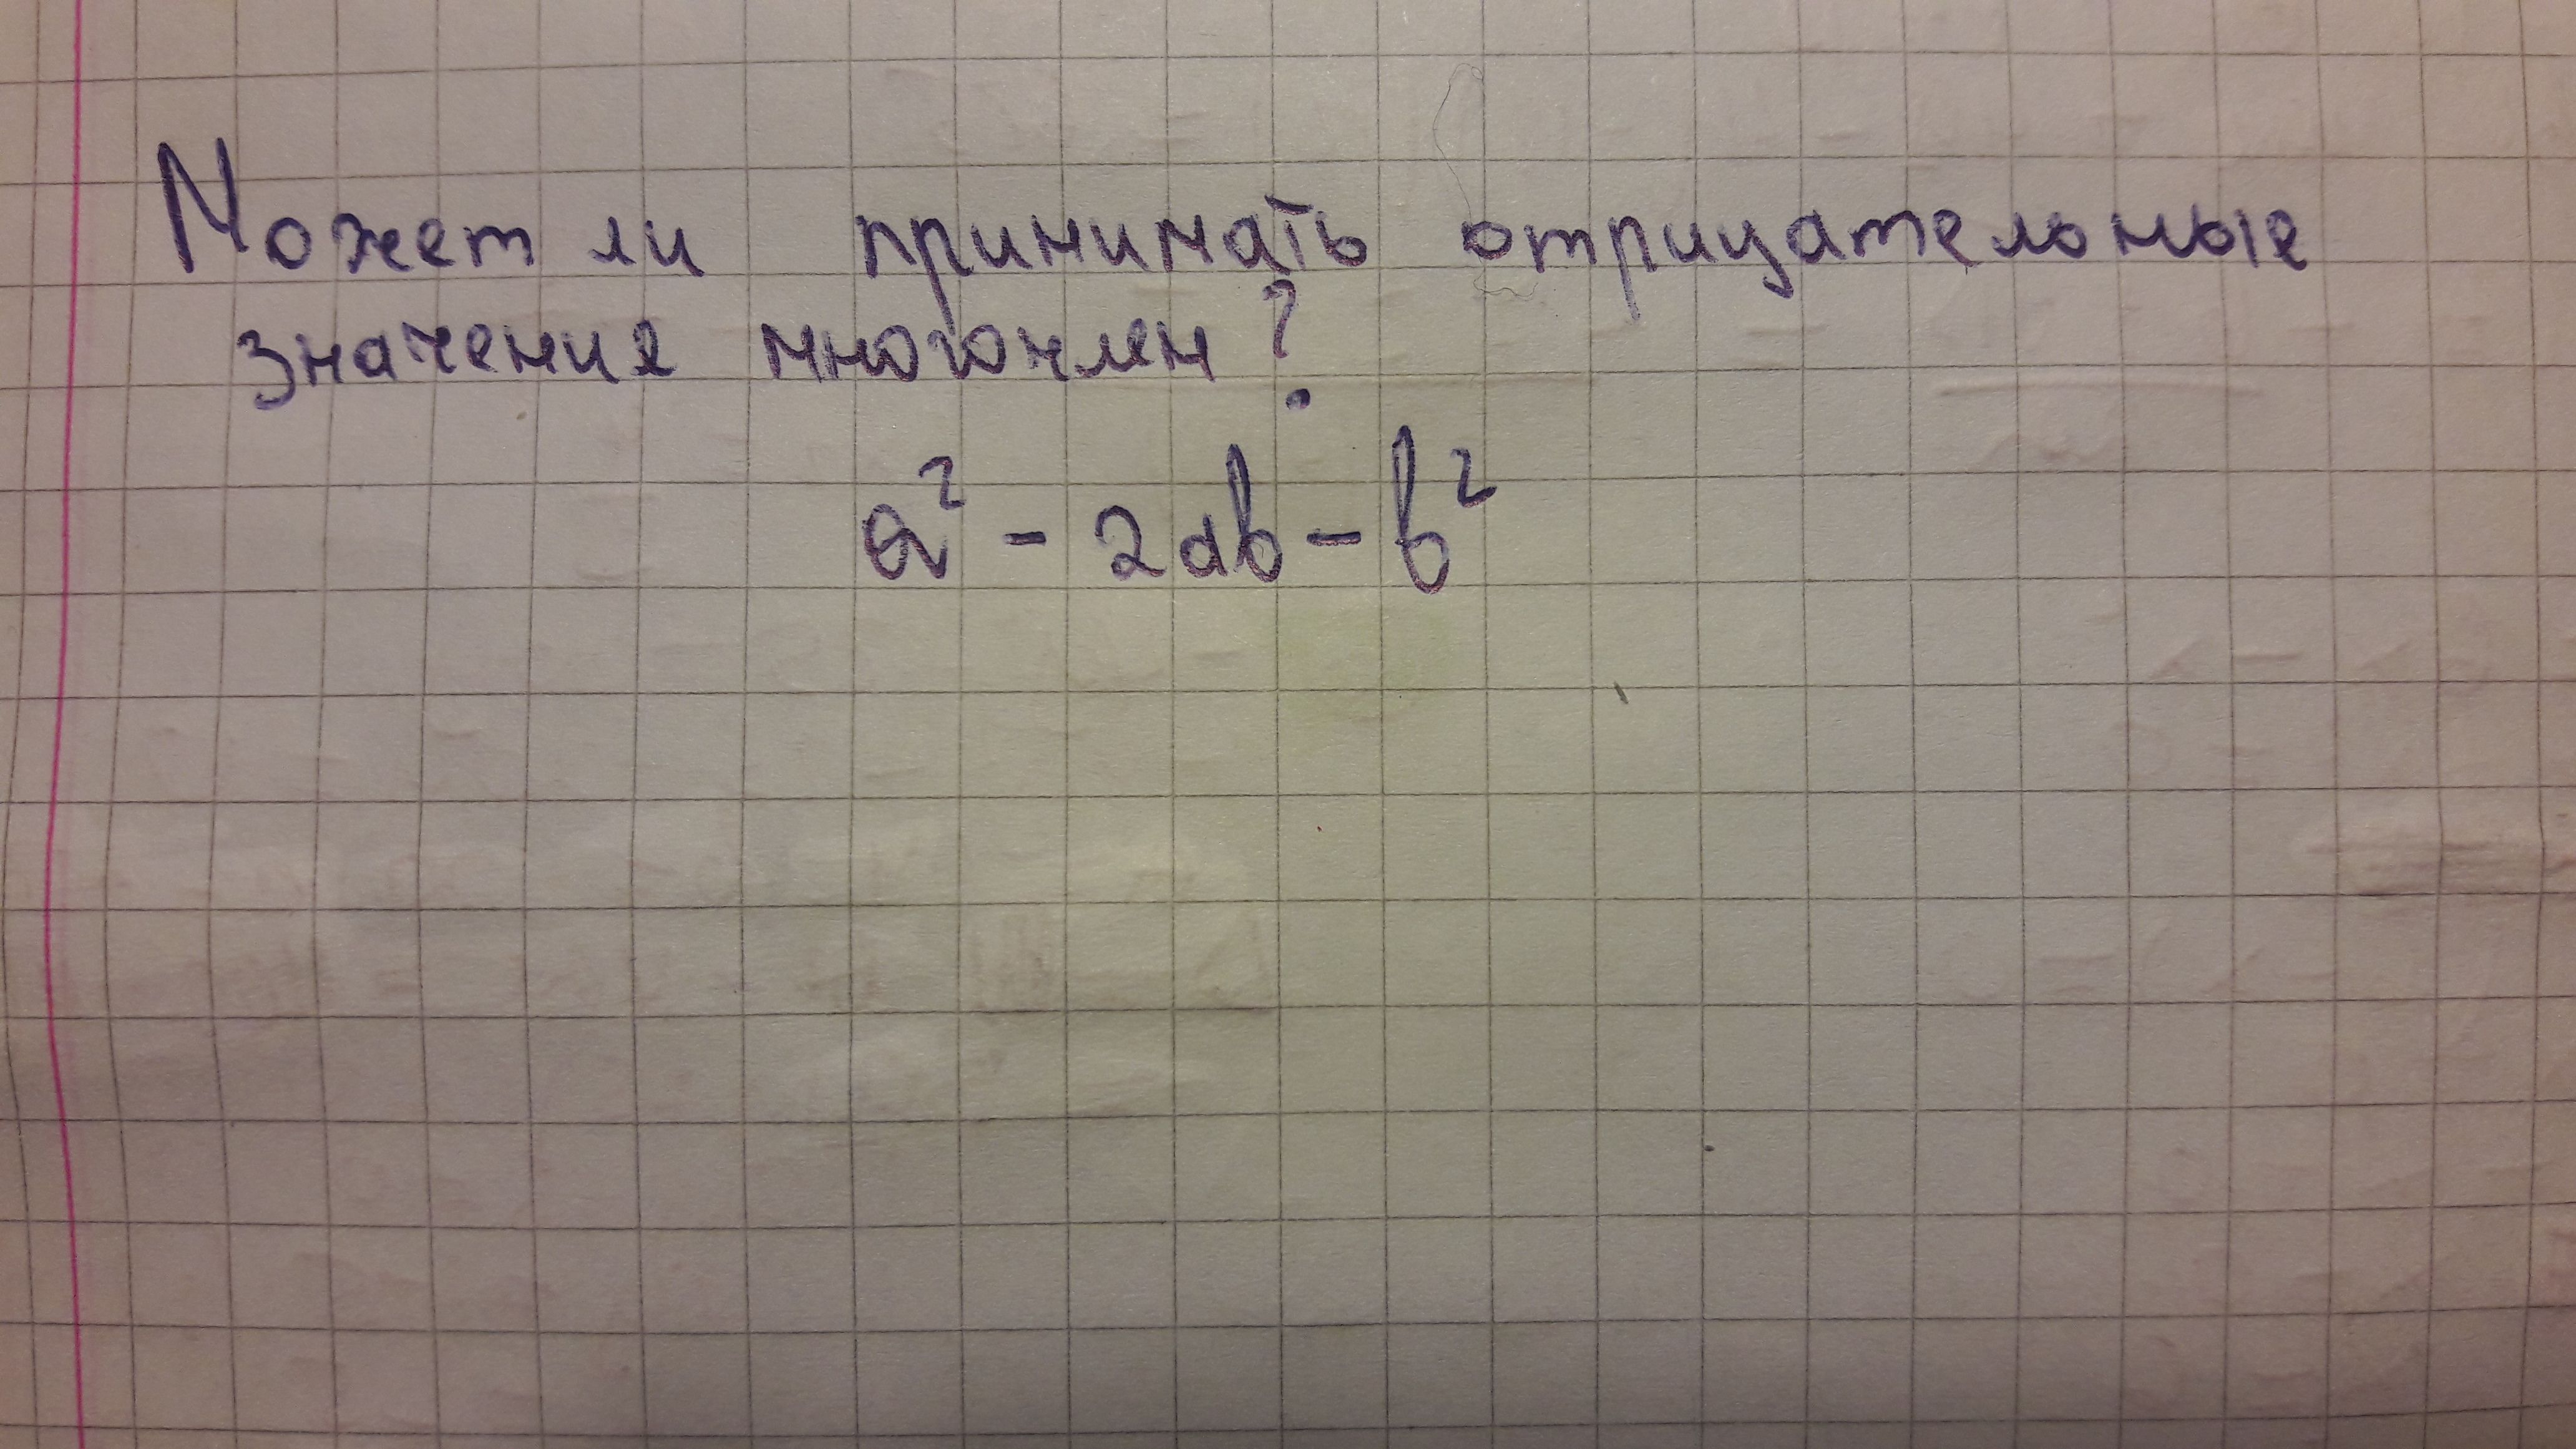 Может ли принимать отрицательные
значения многочлен?
a² - 2ab - b²